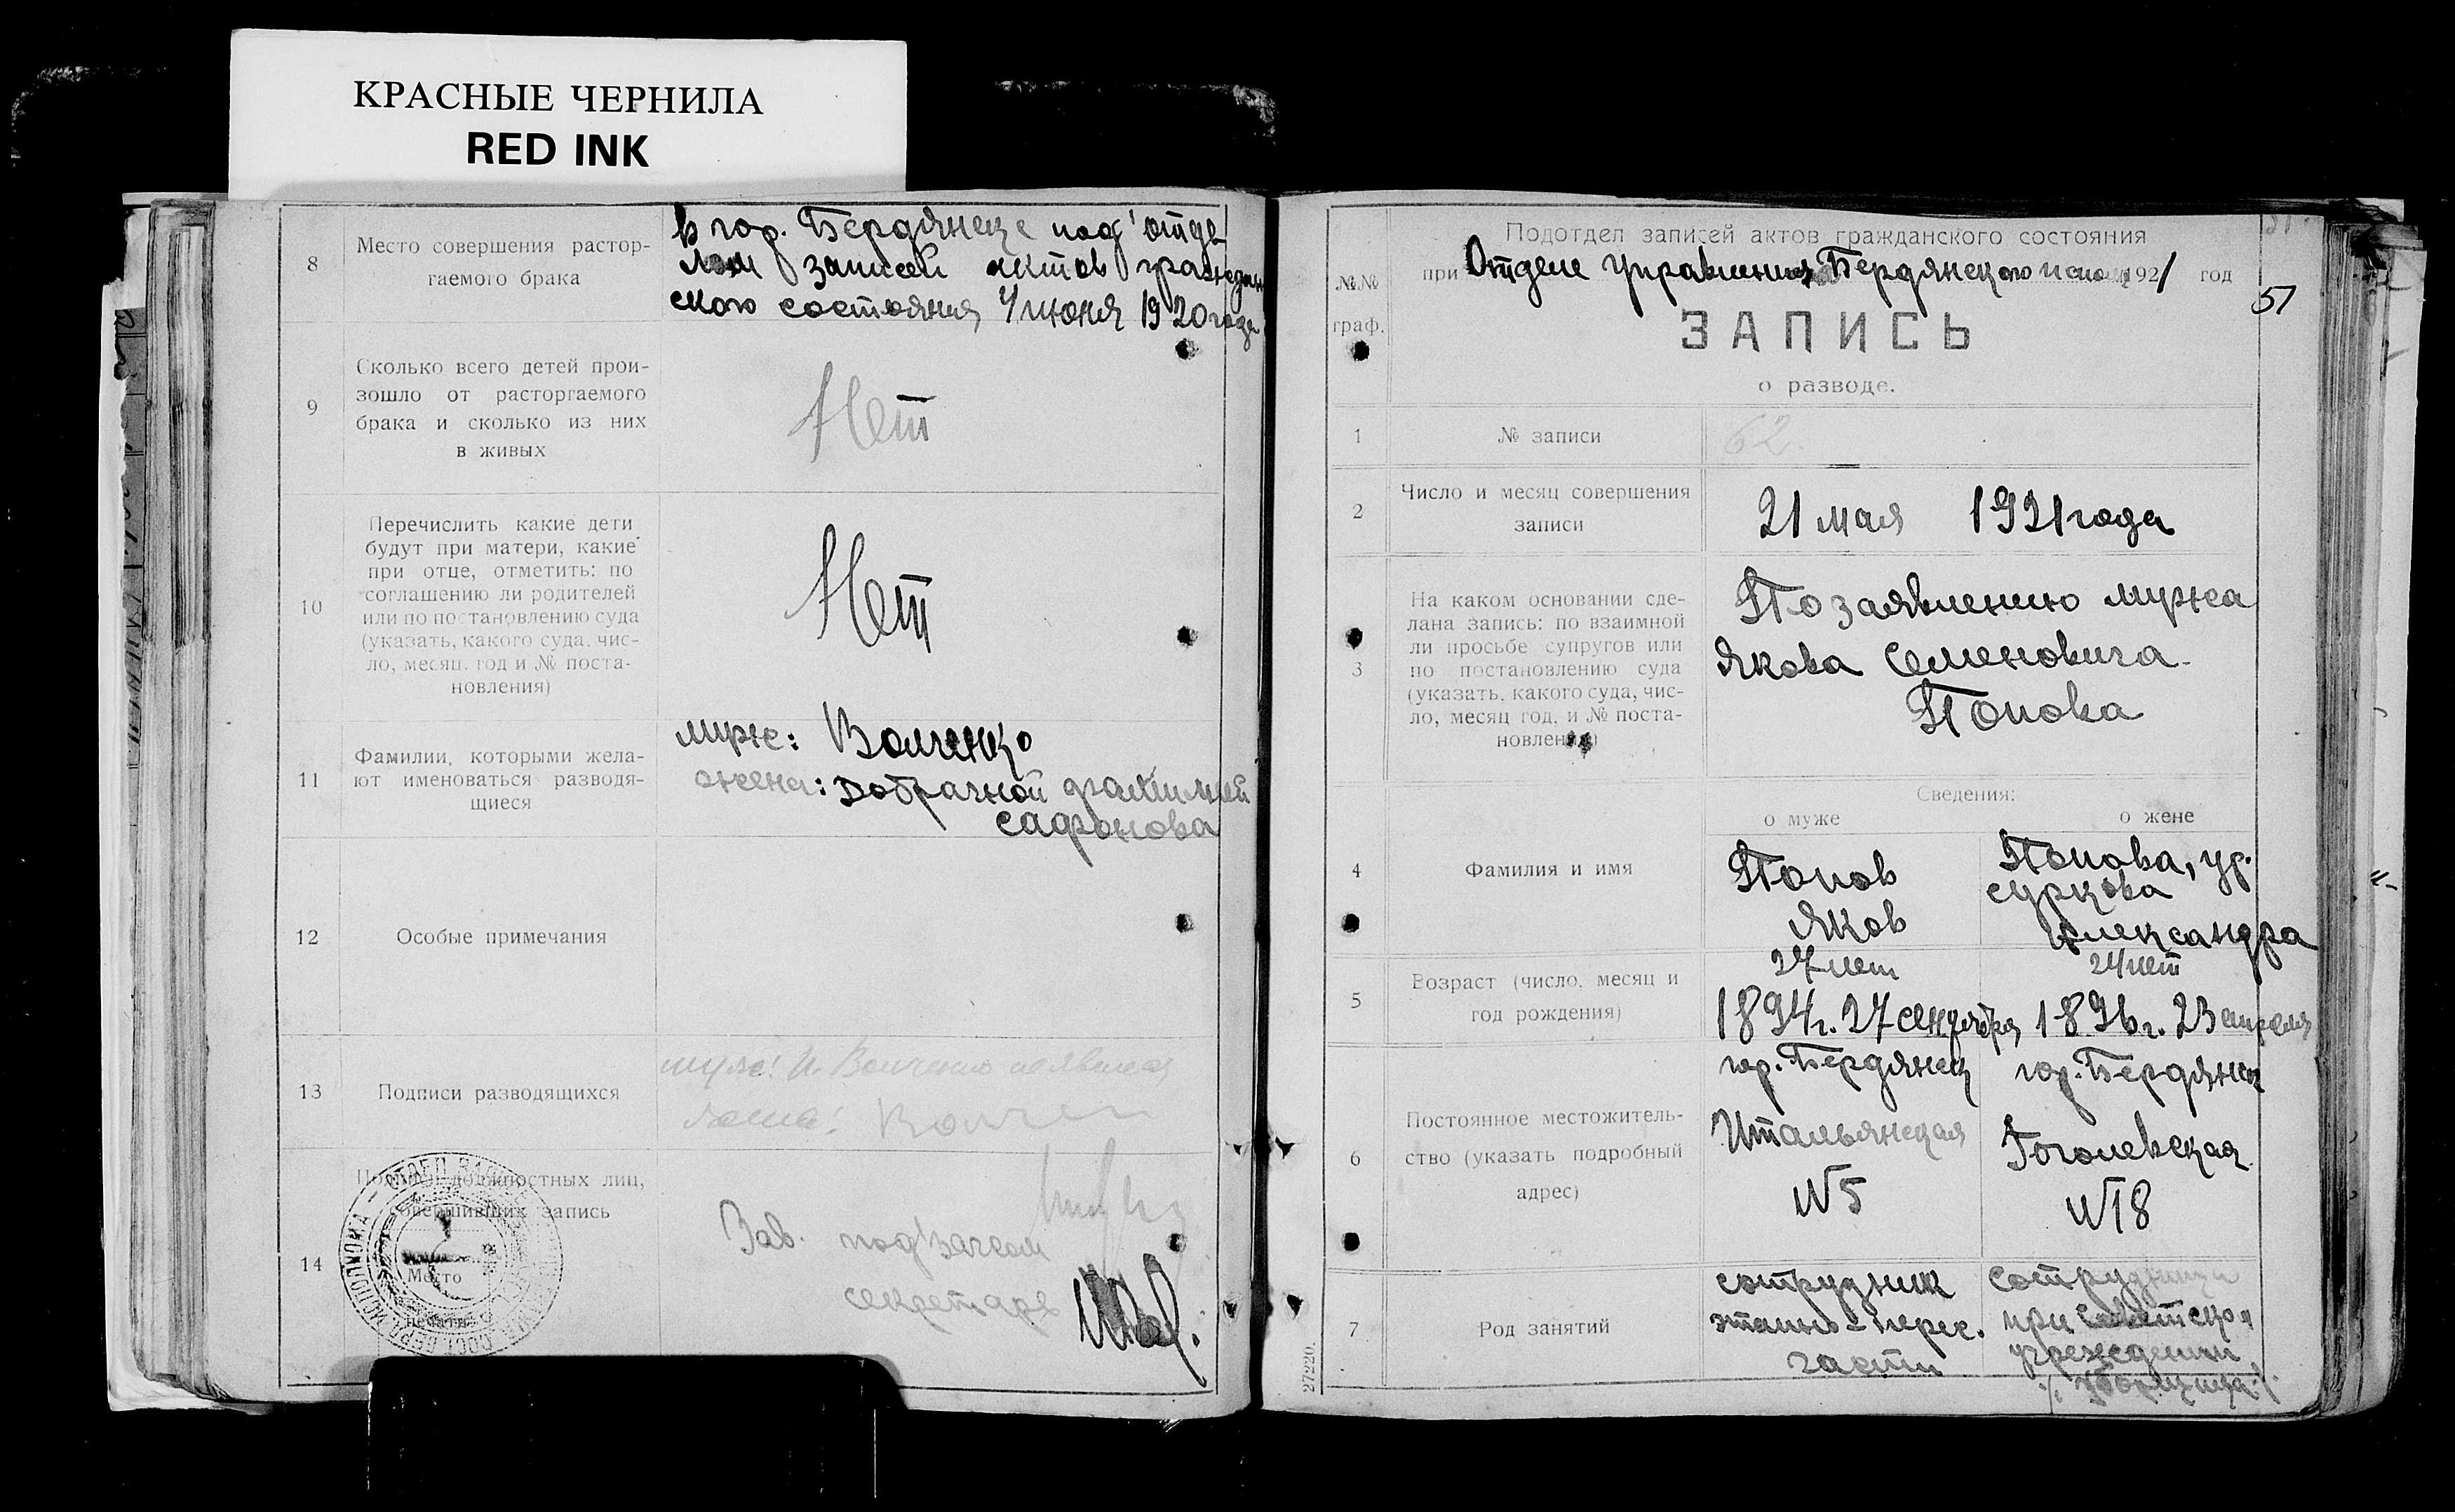 КРАСНЫЕ ЧЕРНИЛА
RED INK
8
Место совершения растор-
гаемого брака
в гор. Бердянске под'отде
лом записей актов граждан
ского состояния 4 июня 1920 года
9
Сколько всего детей прои-
зошло от расторгаемого
брака и сколько из них
в живых
Нет
10
Перечислить какие дети
будут при матери, какие
при отце, отметить: по
соглашению ли родителей
или по постановлению суда
(указать, какого суда, чис-
ло, месяц, год и № поста-
новления)
Нет
11
Фамилии, которыми жела-
ют именоваться разводя-
щиеся
муж: Волченко
жена: Добрачной фамилией
Сафонова
12
Особые примечания
13
Подписи разводящихся
муж: И. Волченко
14
должностных лиц,
совершивших запись
Место
печати
Зав. под'загсом
секретарь
Подотдел записей актов гражданского состояния
при Отделе Управления Бердянского 1921 год
51
№№
граф.
ЗАПИСЬ
о разводе.
1
№ записи
62.
2
Число и месяц совершения
записи
21 мая 1921 года
3
На каком основании сде-
лана запись: по взаимной
ли просьбе супругов или
по постановлению суда
(указать, какого суда, чис-
ло, месяц год, и № поста-
новления)
По заявлению мужа
Якова Семеновича
Попова
Сведения:
о муже
о жене
4
Фамилия и имя
Попов
Яков
Попова, ур.
Суркова
Александра
5
Возраст (число, месяц и
год рождения)
27 лет
1894 г. 27 сентября
24 лет
1896 г. 23 апреля
6
Постоянное местожитель-
ство (указать подробный
адрес)
гор. Бердянск
Итальянская
№ 5
гор. Бердянск
Гоголевская
№ 18
7
Род занятий
сотрудник
этапно-перес.
части
сотрудница
при советском
учреждении
/. уборщица ./
27220.